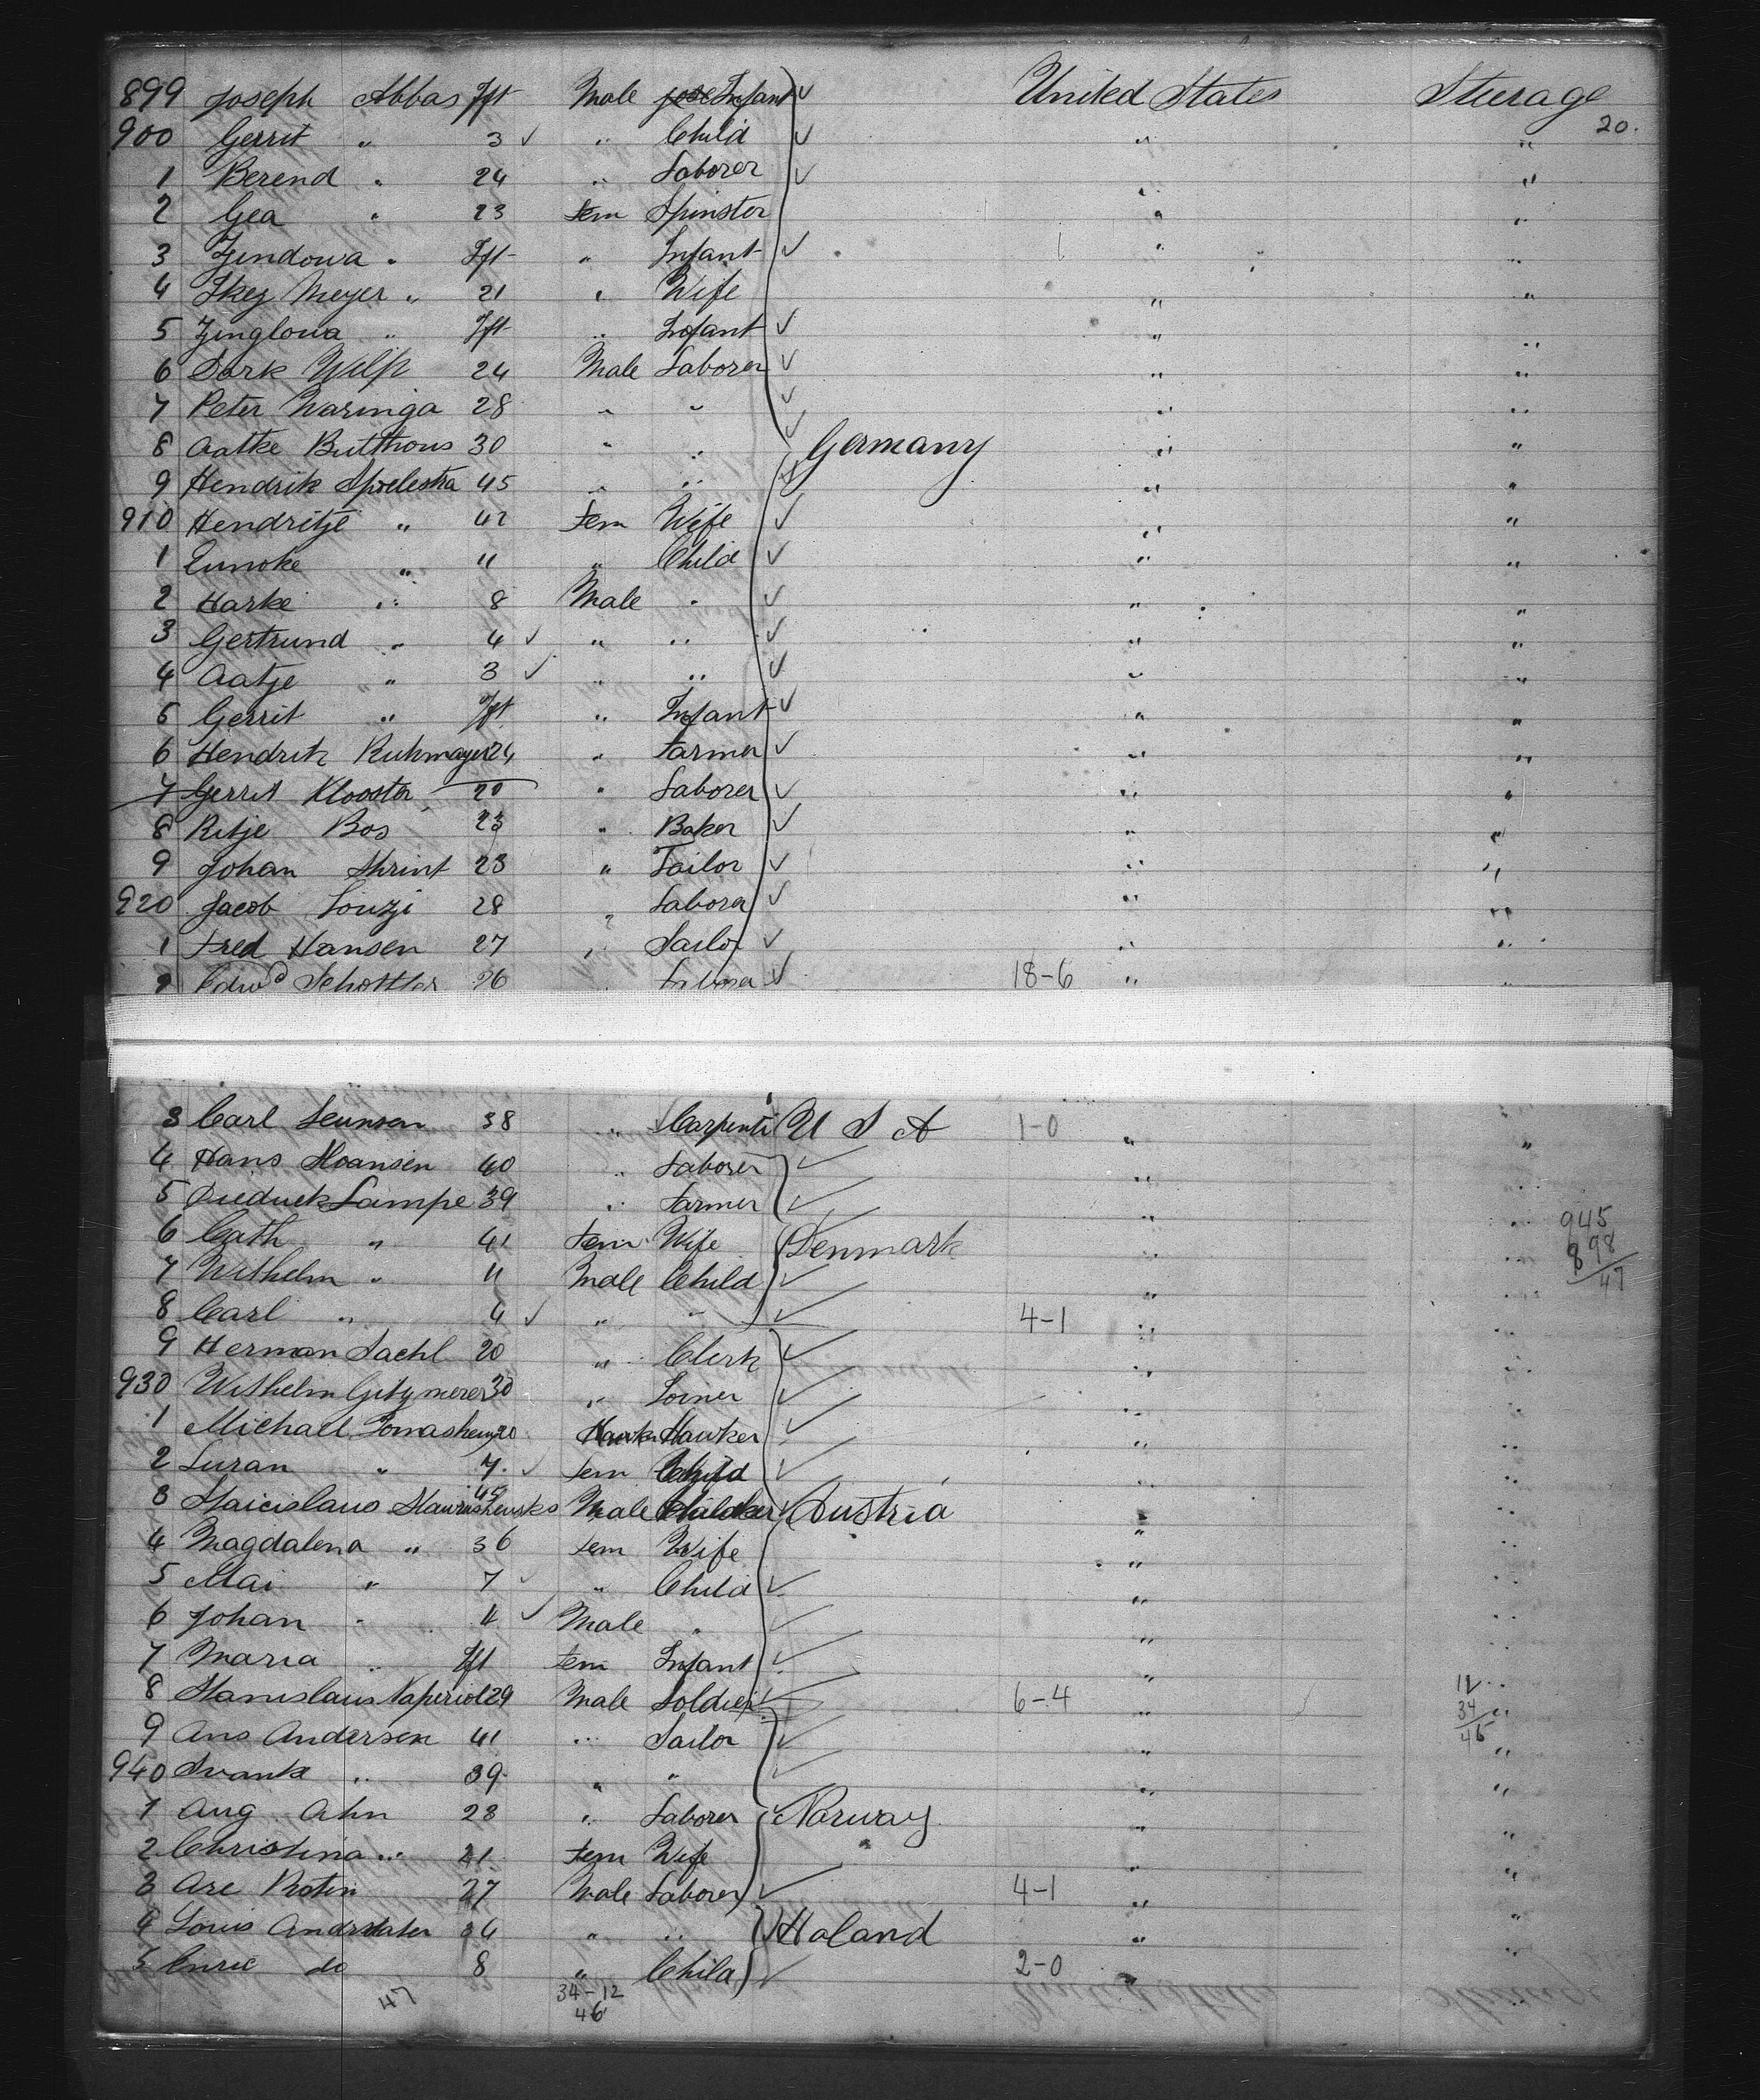 899 Joseph Abbas Jft Male Infant United States Steerage
20.
900 Gerrit " 3 ✓ " Child ✓ " "
1 Berend " 24 " Laborer ✓ " "
2 Gea " 23 Fem Spinster " "
3 Zjindowa " Ift " Infant ✓ " "
4 Ikez Meyer " 21 " Wife " "
5 Zjinglowa " Ift " Infant ✓ " "
6 Derk Welp 24 Male Laborer ✓ " "
7 Peter Waringa 28 " " ✓ " "
8 Aatke Butthous 30 " " ✓ Germany " "
9 Hendrik Spoelestra 45 " " ✓ " "
910 Hendritje " 42 Fem Wife ✓ " "
1 Eunoke " 11 " Child ✓ " "
2 Harke " 8 Male " ✓ " "
3 Gertrund " 4 ✓ " " ✓ " "
4 Aatje " 3 ✓ " " ✓ " "
5 Gerrit " Ift " Infant ✓ " "
6 Hendrik Ruhmayer 24 " Farmer ✓ " "
7 Gerrit Klooster 20 " Laborer ✓ " "
8 Ritje Bos 23 " Baker ✓ " "
9 Johan Shrint 23 " Tailor ✓ " "
920 Jacob Louzi 28 " Labora ✓ " "
1 Fred Hansen 27 " Sailor ✓ " "
2 Edwd Schottler 26 " ✓ 18-6 " "
3 Carl 38 " Carpenti U S A 1-0 " "
4 Hans Hoansen 40 " Laborer ✓ " "
5 Diedrick Lampe 39 " Farmer ✓ " " 945
6 Cath " 41 Fem Wife Denmark " " 898
7 Wilhelm " 11 Male Child ✓ " " 47
8 Carl " 4 ✓ " " ✓ 4-1 " "
9 Herman Sachl 20 " Clerk ✓ " "
930 Wilhelm 30 " ✓ " "
1 Michael 20 Hawker ✓ " "
2 Suran " 7 ✓ Fem Child ✓ " "
3 45 Male Austria " "
4 Magdalena " 36 Fem Wife " "
5 Mai " 7 ✓ " Child ✓ " "
6 Johan " 11 ✓ Male " ✓ " "
7 Maria " Ift Fem Infant ✓ " " 12
8 Stanislaus Naperiol 29 Male Soldier ✓ 6-4 " " 34
9 Ans Andersen 41 " Sailor ✓ " " 46
940 Svank " 39 " " ✓ " "
1 Aug Ahn 28 " Laborer Norway " "
2 Christina " 21 Fem Wife " "
3 Are Rotin 27 Male Laborer ✓ 4-1 " "
4 Louis 34 " " Holand " "
5 Enric do 8 " Child ✓ 2-0 " "
47 34-12
46